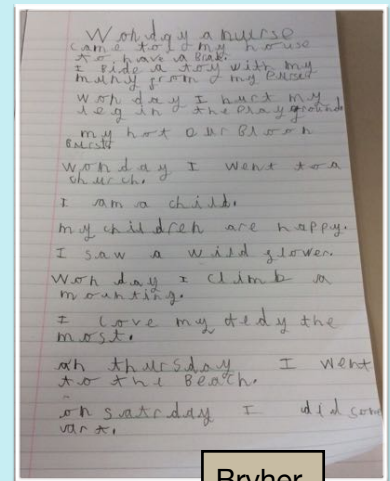 Won day a nurse
came to my house
to have a Brak.
I Bide a toy with my
muny from my Purse
won day I hurt my
leg in the Play ground
my hot air Bloon
Burst.
won day I went to a
church.
I am a child.
my children are happy.
I saw a wild flower.
Won day I climb a
mounting.
I love my dedy the
most.
on thursday I went
to the Beach.
on satrday I did som
vart.
Bryher